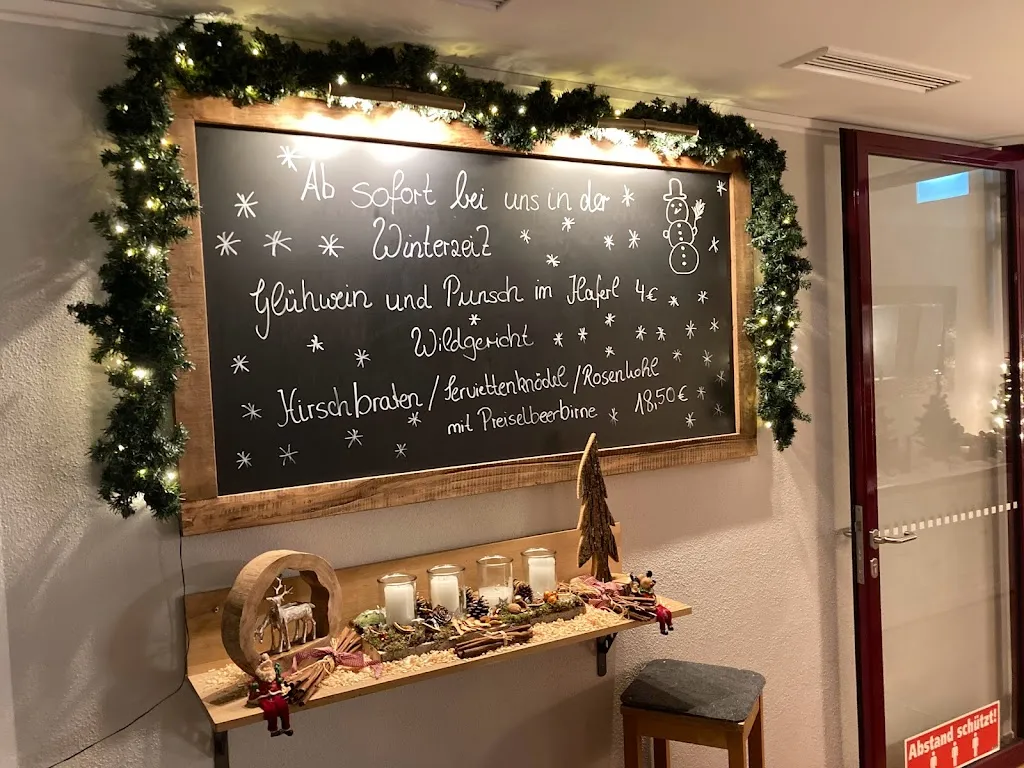 Ab sofort bei uns in der
Winterzeit
Glühwein und Punsch im Haferl 4€
Wildgericht
Hirschbraten / Serviettenknödel / Rosenkohl
mit Preiselbeerbirne 18,50€
Abstand schützt!